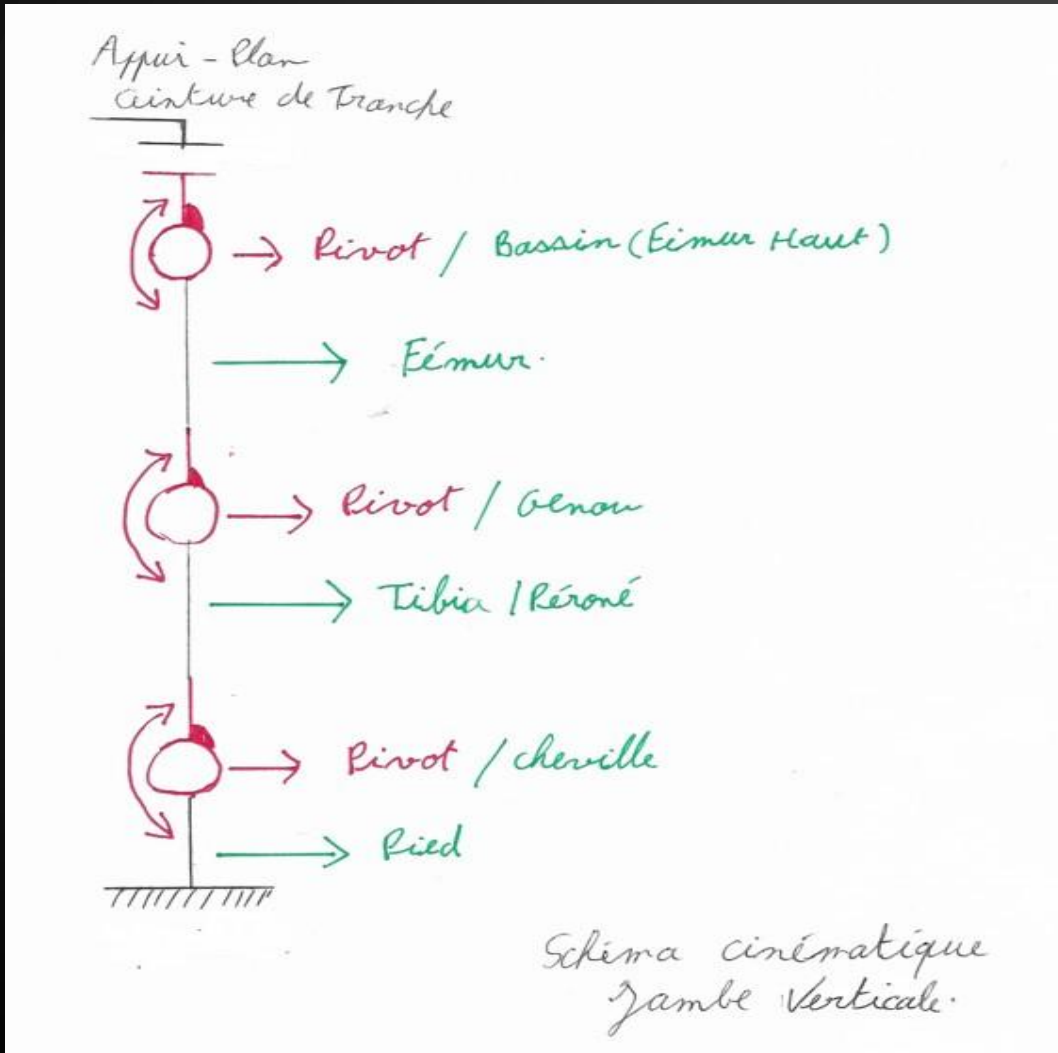 Appui-Plan
Ceinture de Tranche
Pivot / Bassin (Fémur Haut)
Fémur.
Pivot / Genou
Tibia / Péroné
Pivot / cheville
Pied
Schéma cinématique
Jambe Verticale.